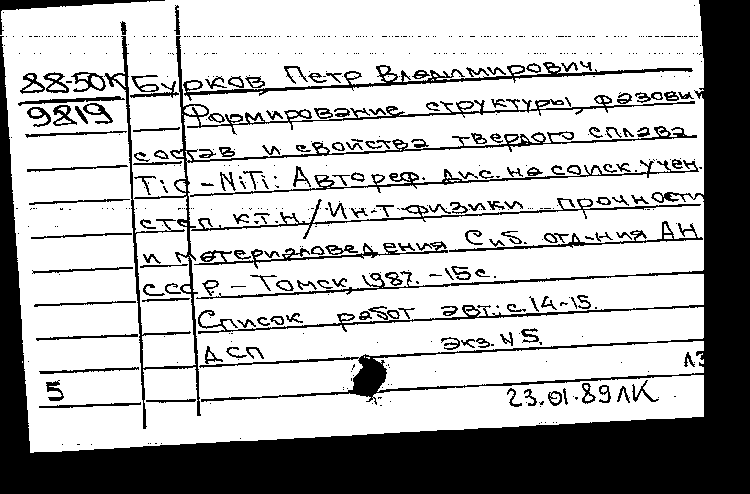 88-50К Бурков, Петр Владимирович.
9819 Формирование структуры, фазовый
состав и свойства твердого сплава
TiC-NiTi: Автореф. дис. на соиск. учен.
степ. к.т.н. / Ин-т физики прочности
и материаловедения Сиб. отд-ния АН
СССР. - Томск, 1987. - 15 с.
Список работ авт.: с. 14-15.
ДСП Экз. N 5.
5
23.01.89 ЛК